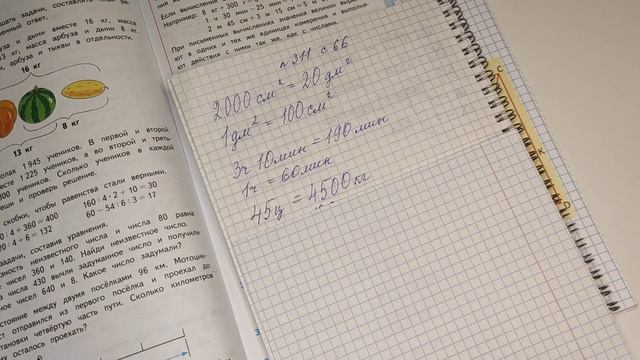 ешать задачи, составлять план ре-
нный ответ.
и дыни вместе 16 кг, масса
3 кг, масса арбуза и дыни 8 кг.
арбуза и тыквы в отдельности.
16 кг
8 кг
13 кг
олах 1 945 учеников. В первой и второй
есте 1 225 учеников, а во второй и треть-
300 учеников. Сколько учеников в каждой
еши и проверь решение.
скобки, чтобы равенства стали верными.
0 : 4 + 360 = 400 160 : 4 · 2 + 10 = 30
20 : 4 + 6 = 132 60 − 54 : 6 : 3 = 17
задачи, составив уравнения.
зность неизвестного числа и числа 80 равна
чисел 360 и 140. Найди неизвестное число.
числа 430 вычли задуманное число и получили
ное чисел 640 и 8. Какое число задумали?
стояние между двумя посёлками 96 км. Мотоцик-
ст отправился из первого посёлка и проехал до
тановки четвёртую часть пути. Сколько километров
му осталось проехать?
Если вычисления
Например: 8 кг + 300 г
1 ч 30 мин − 25 мин
2 м 45 см + 3 м 15 см = 5 м
При письменных вычислениях значения величин выра-
ют в одних и тех же единицах измерения и выполня-
ют действия с ними так же, как с числами.
№311 с 66
2000 см² = 20 дм²
1 дм² = 100 см²
3ч 10мин = 190 мин
1ч = 60мин
45ц = 4500 кг
С
К